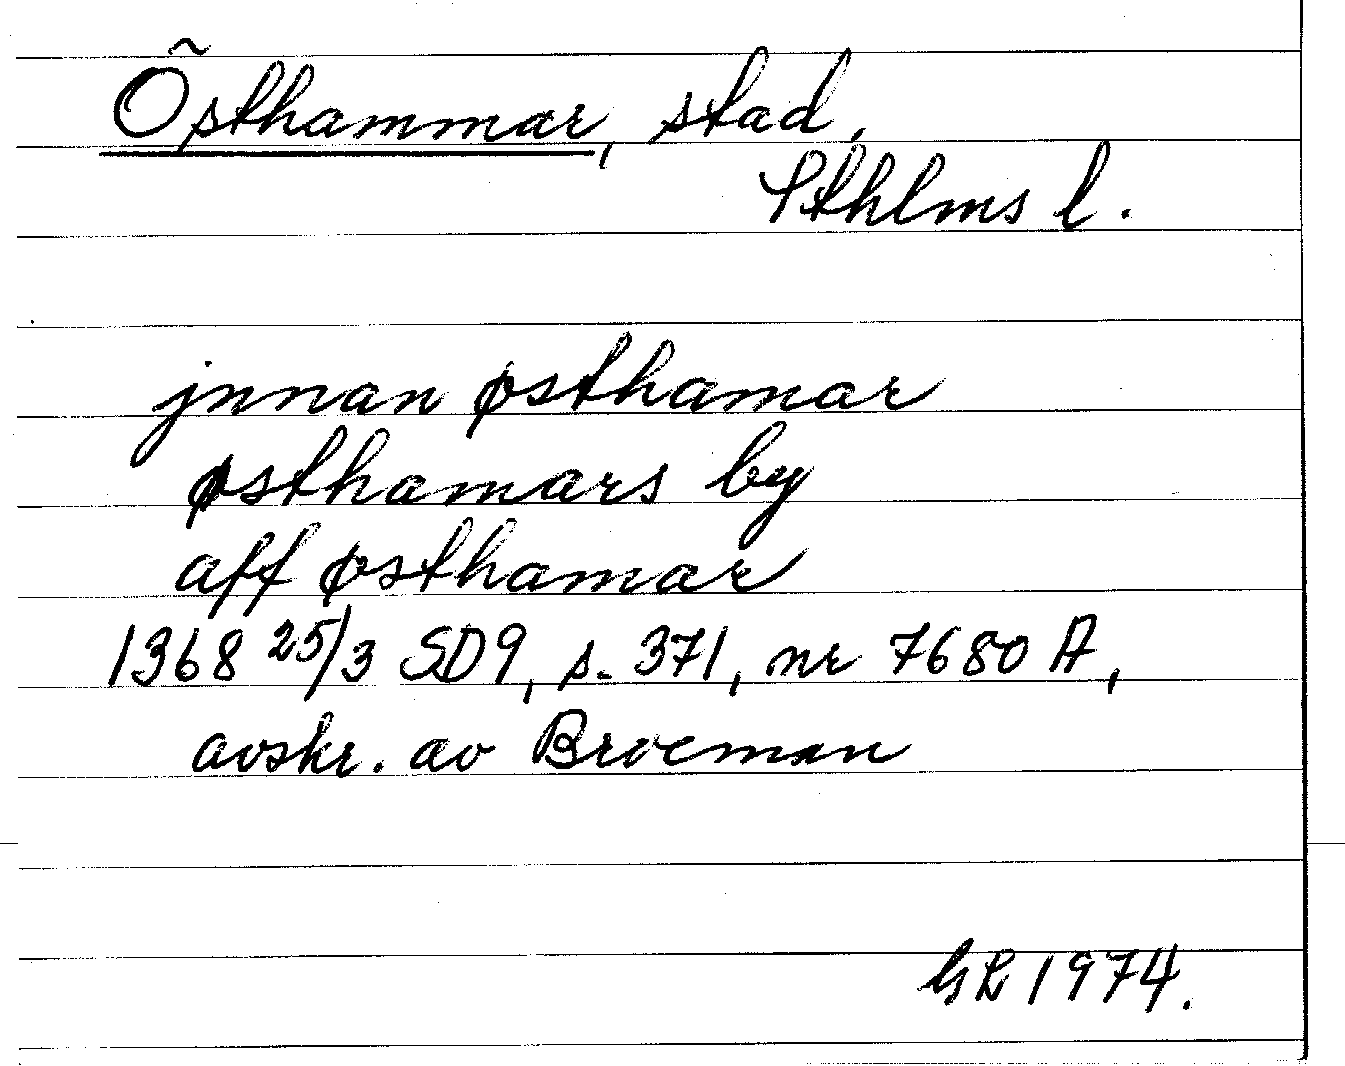 Östhammar, stad,
Sthlms l.
jnnan østhamar
østhamars by
aff østhamar
1368 25/3 SD9, s. 371, nr 7680 A,
avskr. av Broeman
GR 1974.